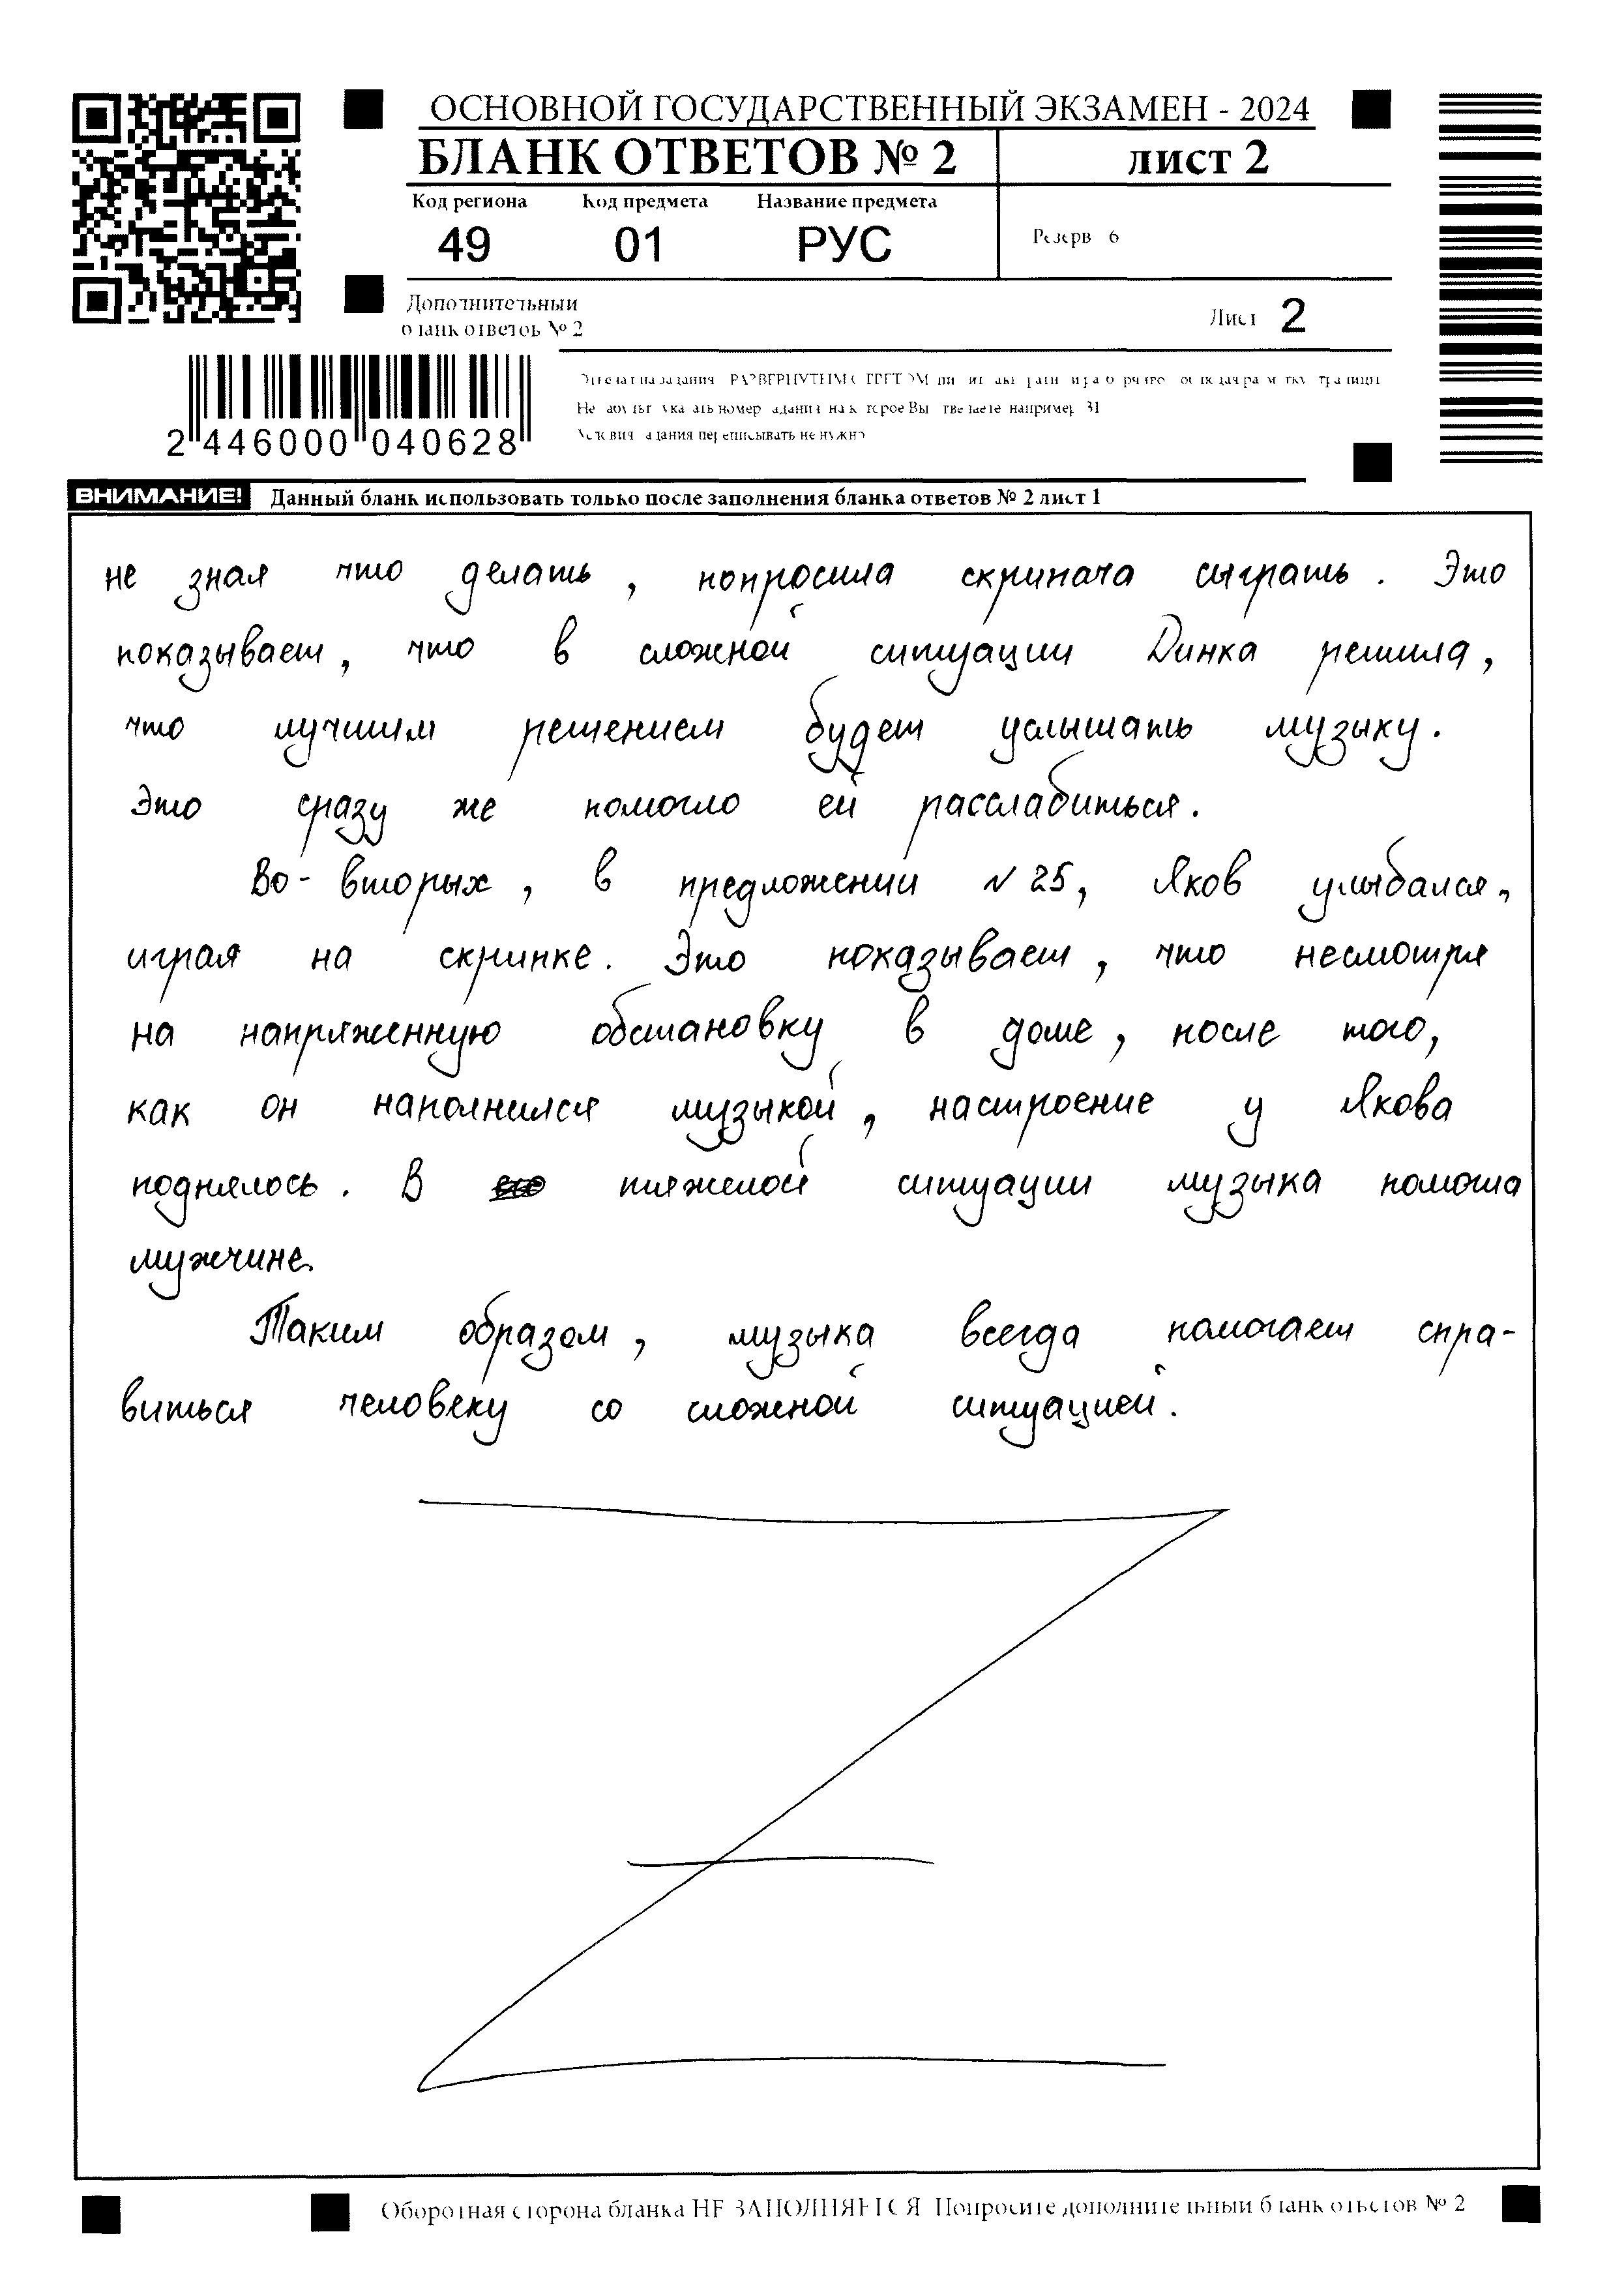 ОСНОВНОЙ ГОСУДАРСТВЕННЫЙ ЭКЗАМЕН - 2024
БЛАНК ОТВЕТОВ № 2 лист 2
Код региона Код предмета Название предмета
49 01 РУС Резерв 6
Дополнительный
бланк ответов № 2
Лист 2
РАЗВЕРНУТЫМ
номер например 31
Условия задания переписывать не нужно
2 446000 040628
ВНИМАНИЕ! Данный бланк использовать только после заполнения бланка ответов № 2 лист 1
не зная что делать, попросила скрипача сыграть. Это
показывает, что в сложной ситуации Динка решила,
что лучшим решением будет услышать музыку.
Это сразу же помогло ей расслабиться.
Во-вторых, в предложении N 25, Яков улыбался,
играя на скрипке. Это показывает, что несмотря
на напряженную обстановку в доме, после того,
как он наполнился музыкой, настроение у Якова
поднялось. В тяжелой ситуации музыка помогла
мужчине.
Таким образом, музыка всегда помогает спра-
виться человеку со сложной ситуацией.
Оборотная сторона бланка НЕ ЗАПОЛНЯЕТСЯ Попросите дополнительный бланк ответов № 2